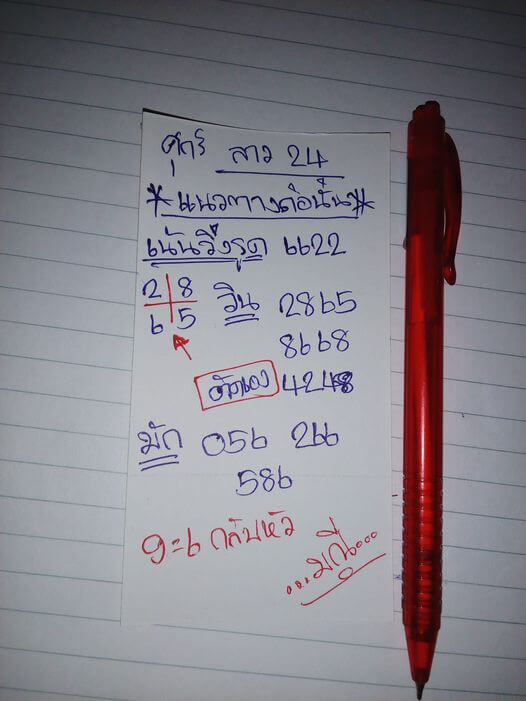 ศุกร์ ลาว 24
*แนวทางต่อนั้น*
เน้นวิ่งรูด 6622
2 8
6 5
วิน 2865
8668
ตัดเอง 4248
มัก 056 266
586
9=6 กลับหัว
...มณี...